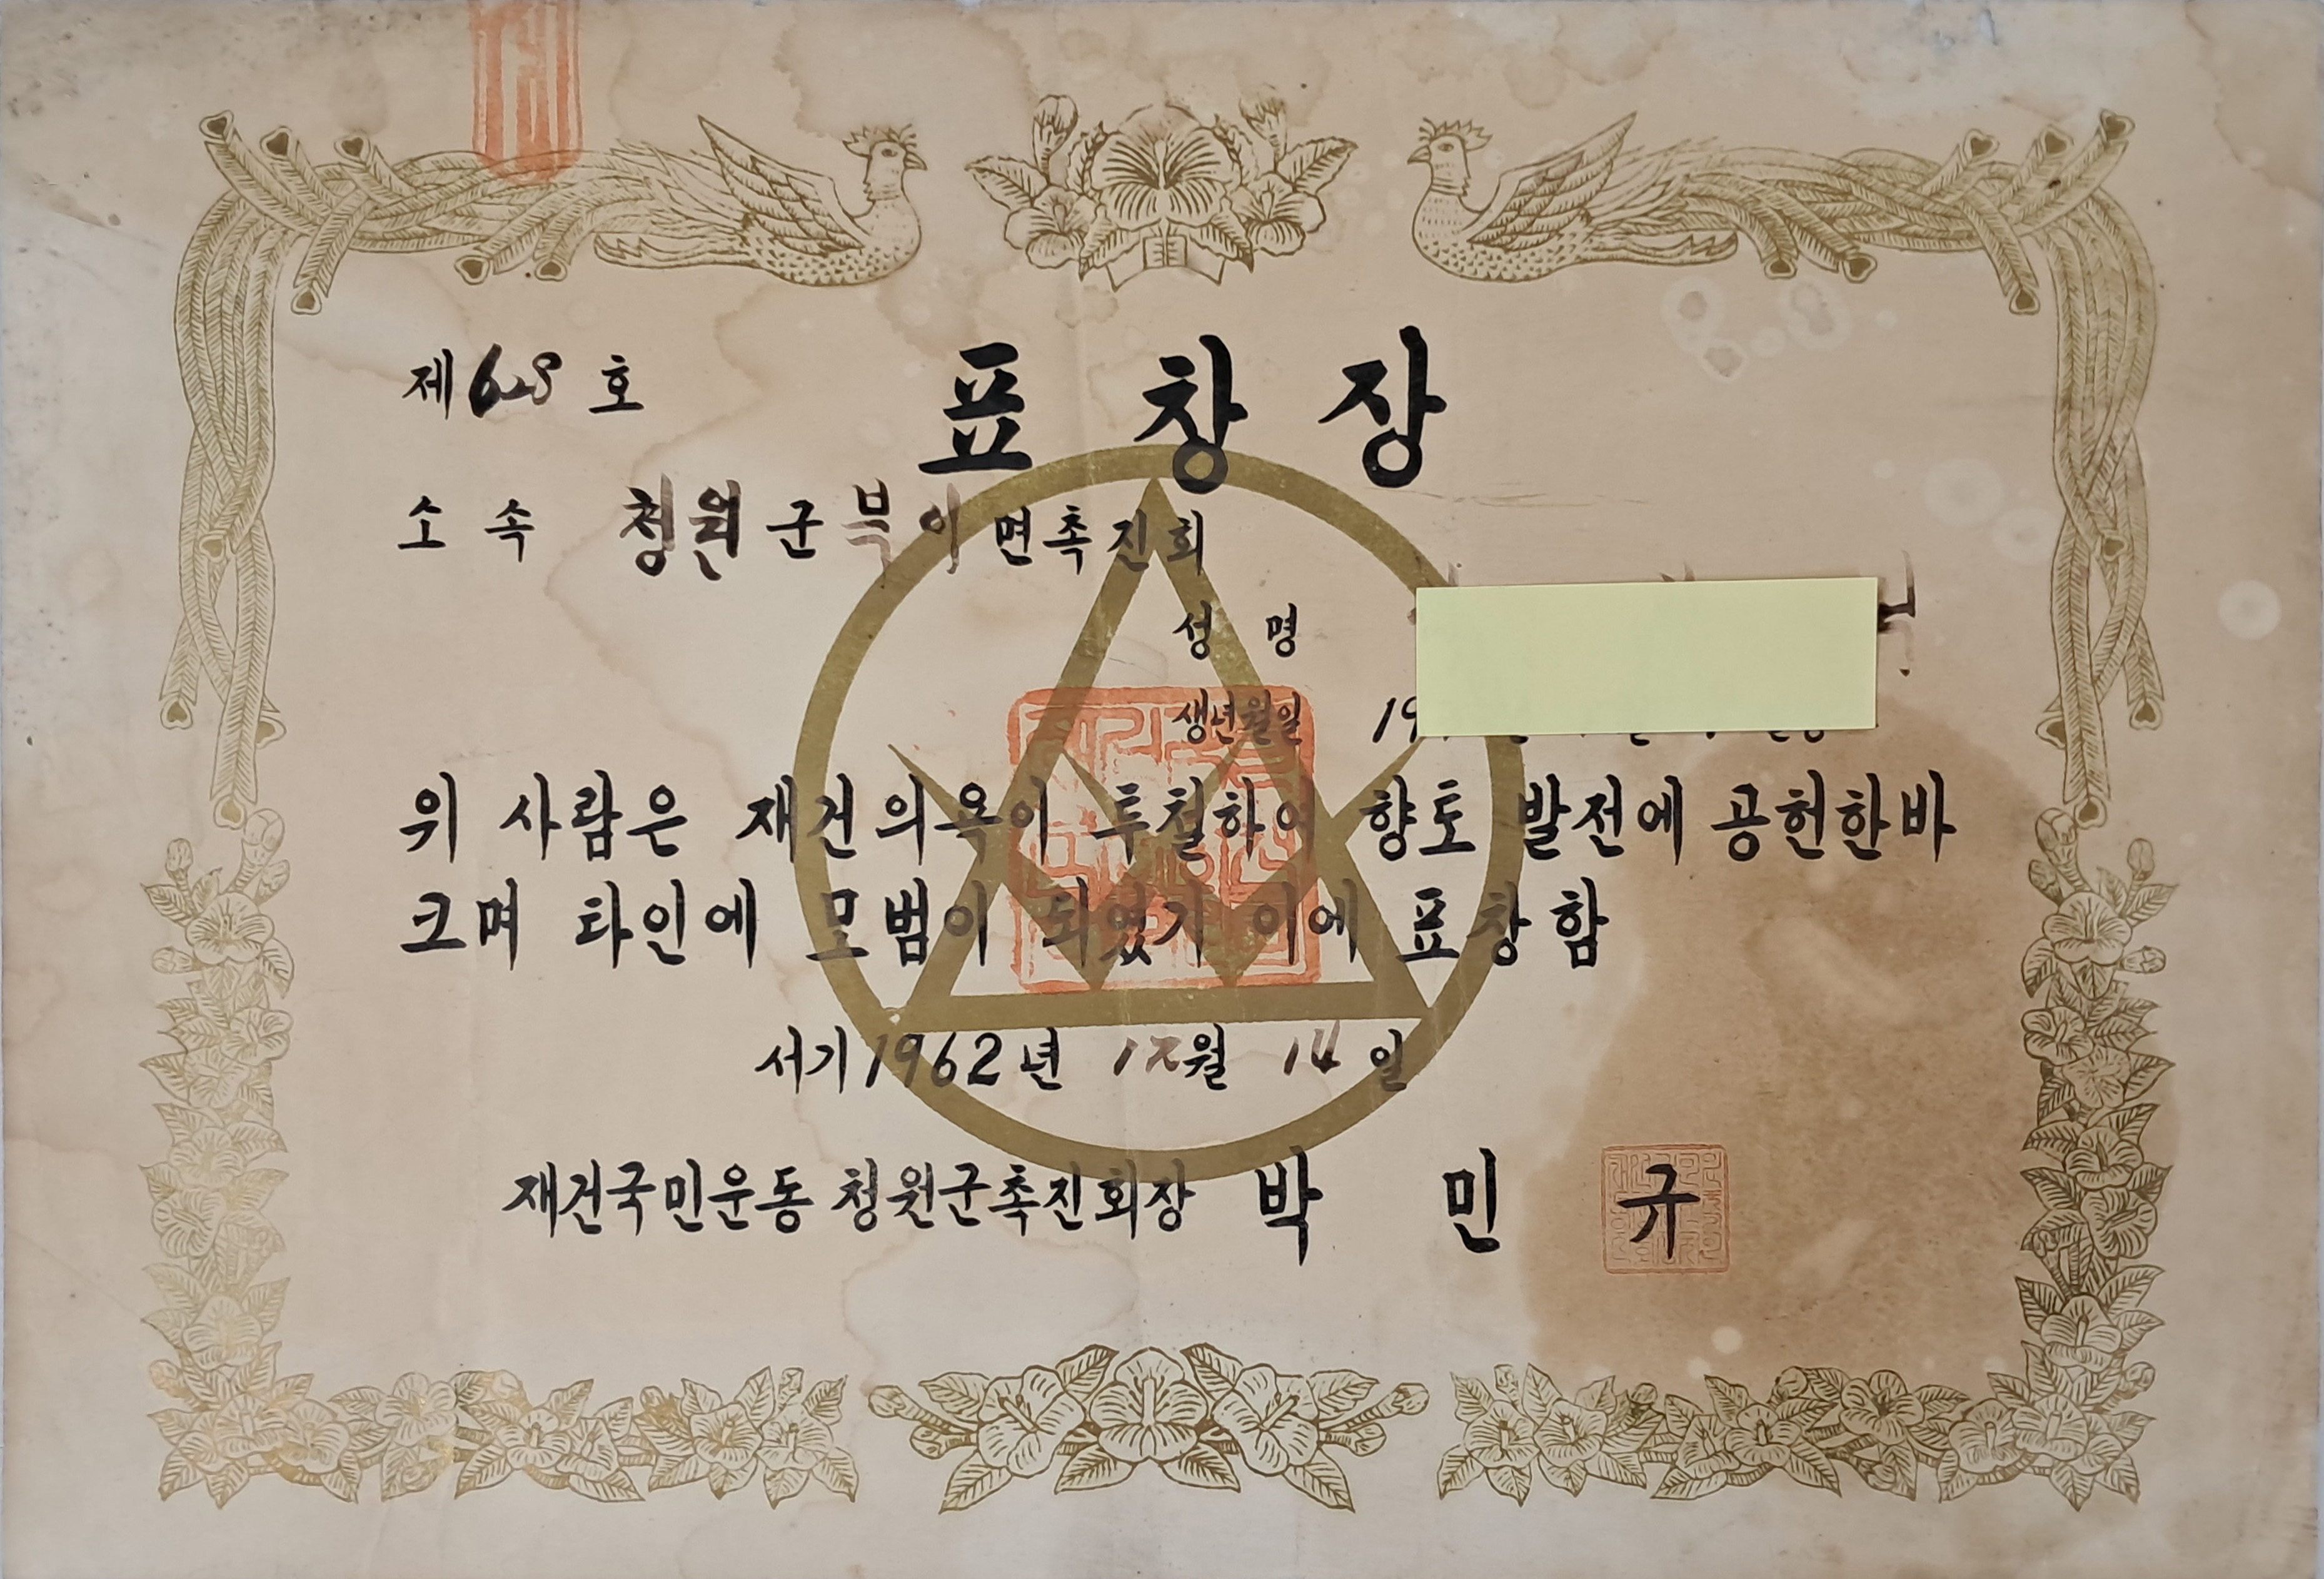 표창장
제 628 호
소속 청원군 북이면촉진회
성명
생년월일 19
위 사람은 재건의욕이 투철하여 향토 발전에 공헌한바
크며 타인에 모범이 되였기 이에 표창함
서기 1962년 12월 14일
재건국민운동 청원군촉진회장 박 민 규